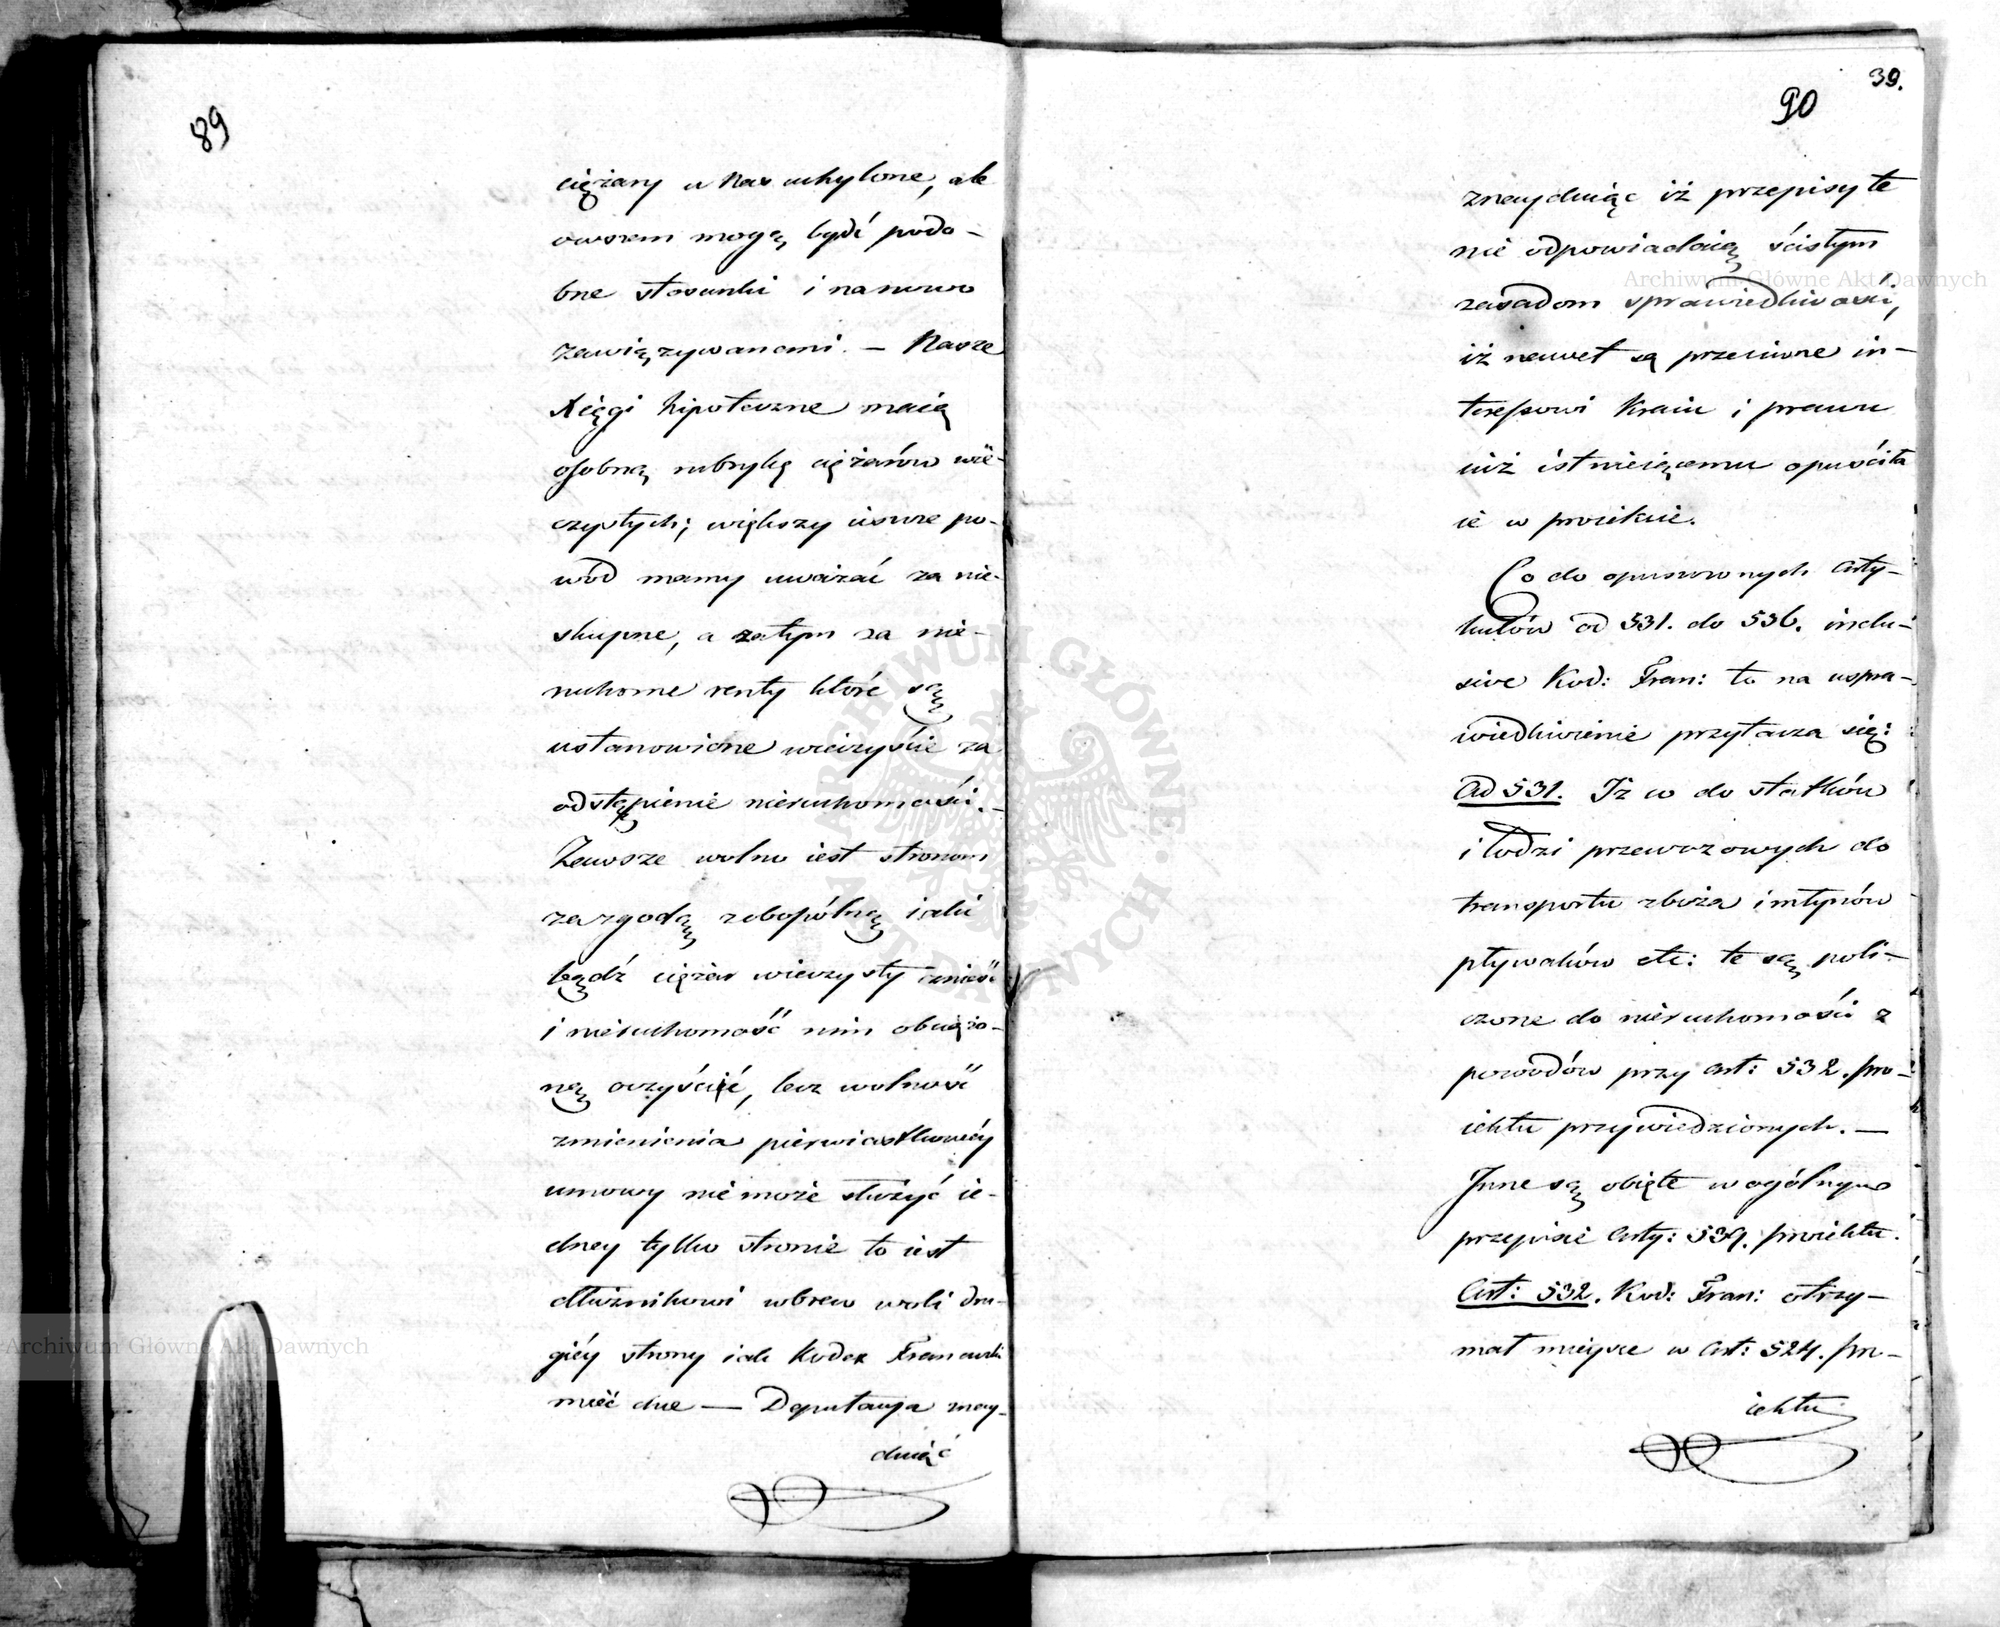 89
ciężary u nas uchylone, ale
owszem mogą bydź podo-
bne stosunki i na nowo
zawiązywanemi. — Nasze
Xięgi hipoteczne maią
osobną rubrykę ciężarów wie-
czystych; większy ieszcze po-
wód mamy uważać za nie-
skupne, a zatym za nie-
ruchome renty które są
ustanowione wieczyście za
odstąpienie nieruchomości. —
Zawsze wolno iest stronom
za zgodą zobopólną iaki
bądź ciężar wieczysty znieść
i nieruchomość nim obciążo-
ną oczyścić, lecz wolność
zmienienia pierwiastkowéy
umowy nie może służyć ie-
dney tylko stronie to iest
dłużnikowi wbrew woli dru-
giéy strony iak Kodex Francuski
mieć chce — Deputacya znay-
duiąc
39.
90
znayduiąc iż przepisy te
nie odpowiadaią ścisłym
zasadom sprawiedliwości,
iż nawet są przeciwne in-
teressowi Kraiu i prawu
iuż istnieiącemu opuściła
ie w proiekcie.
Co do opuszczonych Arty-
kułów od 531. do 536. inclu-
sive Kod: Fran: to na uspra-
wiedliwienie przytacza się:
Ad 531. Iż co do statków
i łodzi przewozowych do
transportu zboża i młynów
pływaków etc: te są poli-
czone do nieruchomości z
powodów przy Art: 532. pro-
iektu przywiedzionych. —
Inne są obięte w ogólnym
przepisie Arty: 539. proiektu.
Art: 532. Kod: Fran: otrzy-
mał mieysce w Art: 524. pro-
iektu
Archiwum Główne Akt Dawnych
Archiwum Główne Akt Dawnych
ARCHIWUM GŁÓWNE AKT DAWNYCH